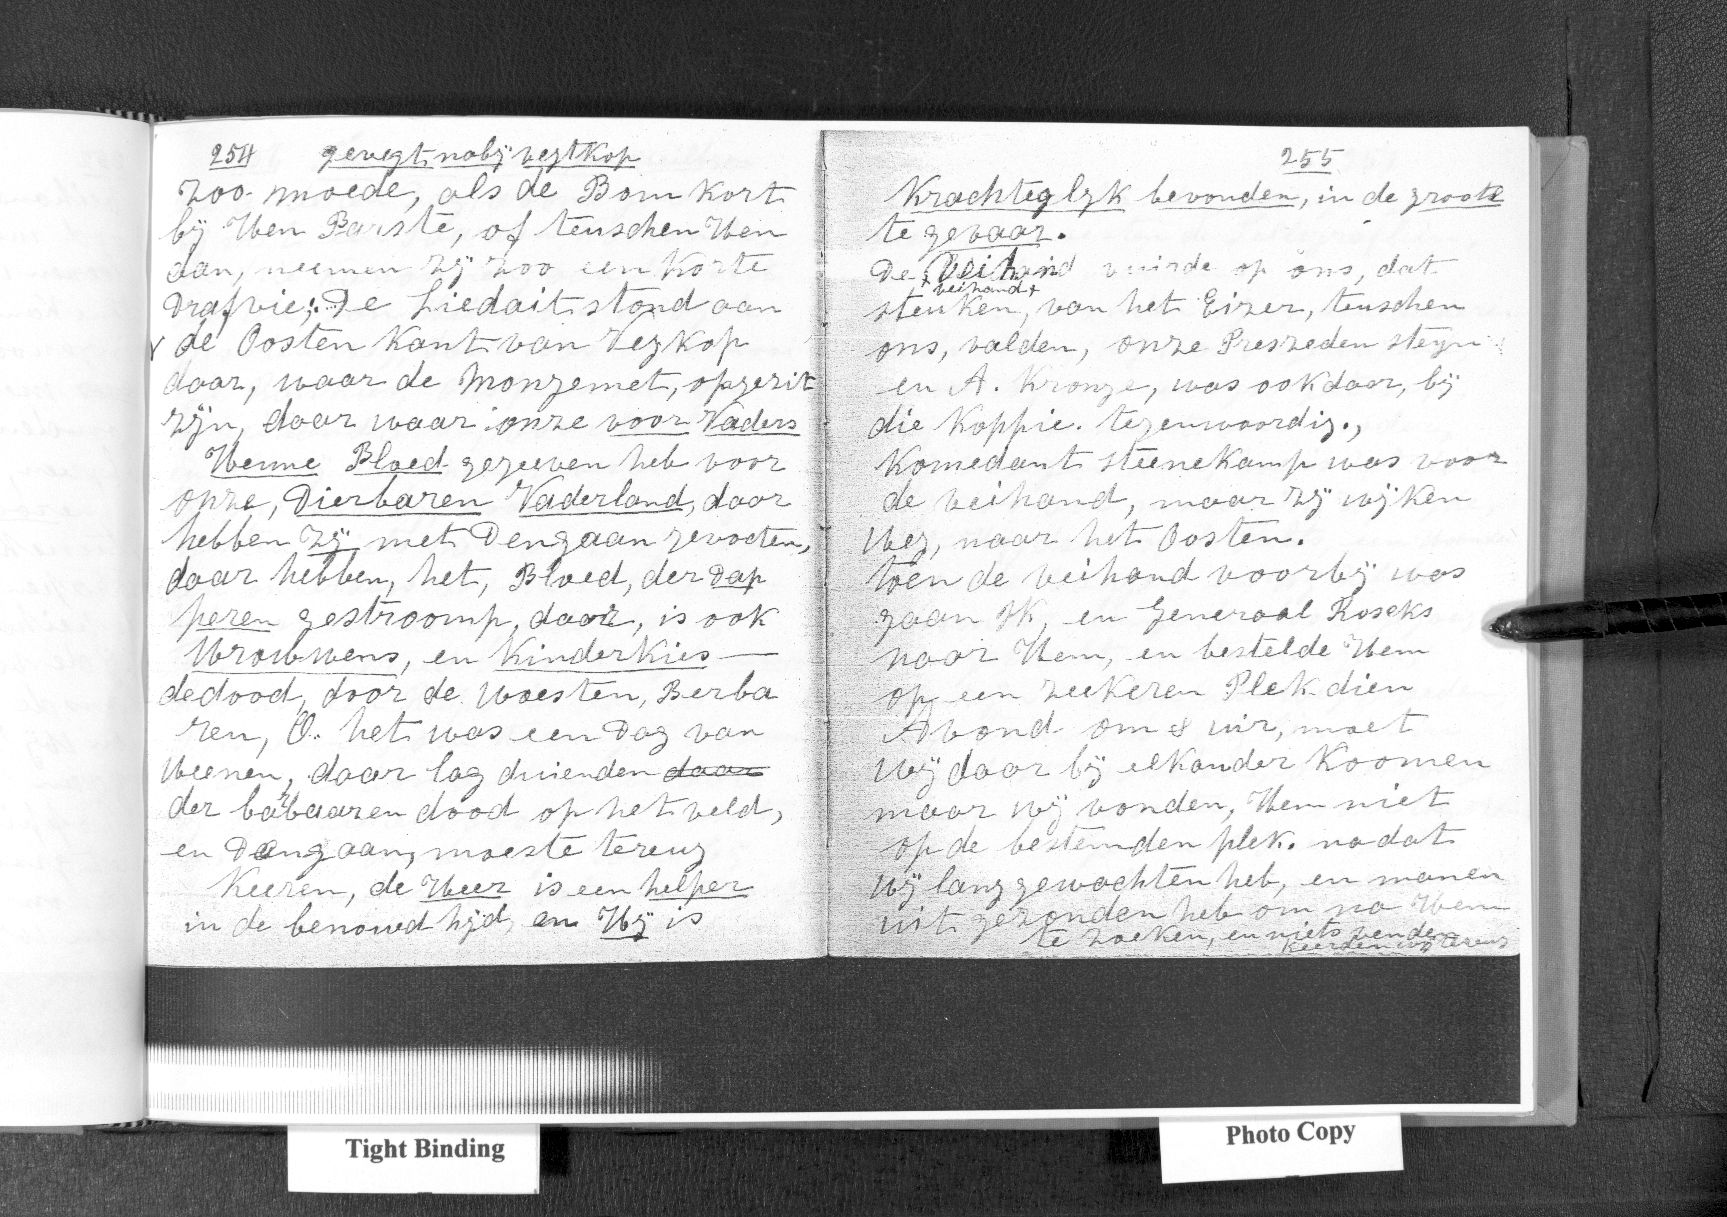 254 gevegt naby vegtkop
zoo moede, als de Bom kort
by Hen Barste, of teuschen Hen
dan, neemen zy zoo een korte
Drafvie; De Liedait stond aan
de Oosten kant van Vegkop
daar, waar de Monzemet, opgerit
zyn, daar waar onze voor Vaders
Henne Bloed gegeeven heb voor
onze, Dierbaren Vaderland, daar
hebben zy met Dengaan gevocten,
daar hebben, het, Bloed, der Dap
peren gestroomp, daar, is ook
Vrouwens, en Kinderkies
dedood, door de woesten, Berba
ren, O. het was een Dag van
Weenen, daar lag duienden daar
der barbaaren dood op het veld,
en Dengaan, moeste tereug
Keeren, de Heer is een helper
in de benowdhyd, en Hy is
255
Krachteglyk bevonden, in de groots
te gevaar.
De Veihand vuirde op ons, dat
veihand
steuken, van het Eizer, teuschen
ons, valden, onze Preszeden steyn
en A. Kronge, was ook daar, by
die Koppie. tegenwoordig.,
Komedant steenekamp was voor
de veihand, maar zy wyken
Weg, naar het Oosten.
toen de veihand voorby was
gaan Ik, en Generaal Roseks
naar Hem, en bestelde Hem
op een zeekeren Plek dien
Avond om 8 uir, moet
Wy daar by elkander Koomen
maar wy vonden, Hem niet
op de bestemden plek. nadat
Wy lang gewachten heb, en manen
uit gezonden heb om na Hem
te zoeken, en niets vende
keerden wy tereug
Tight Binding
Photo Copy